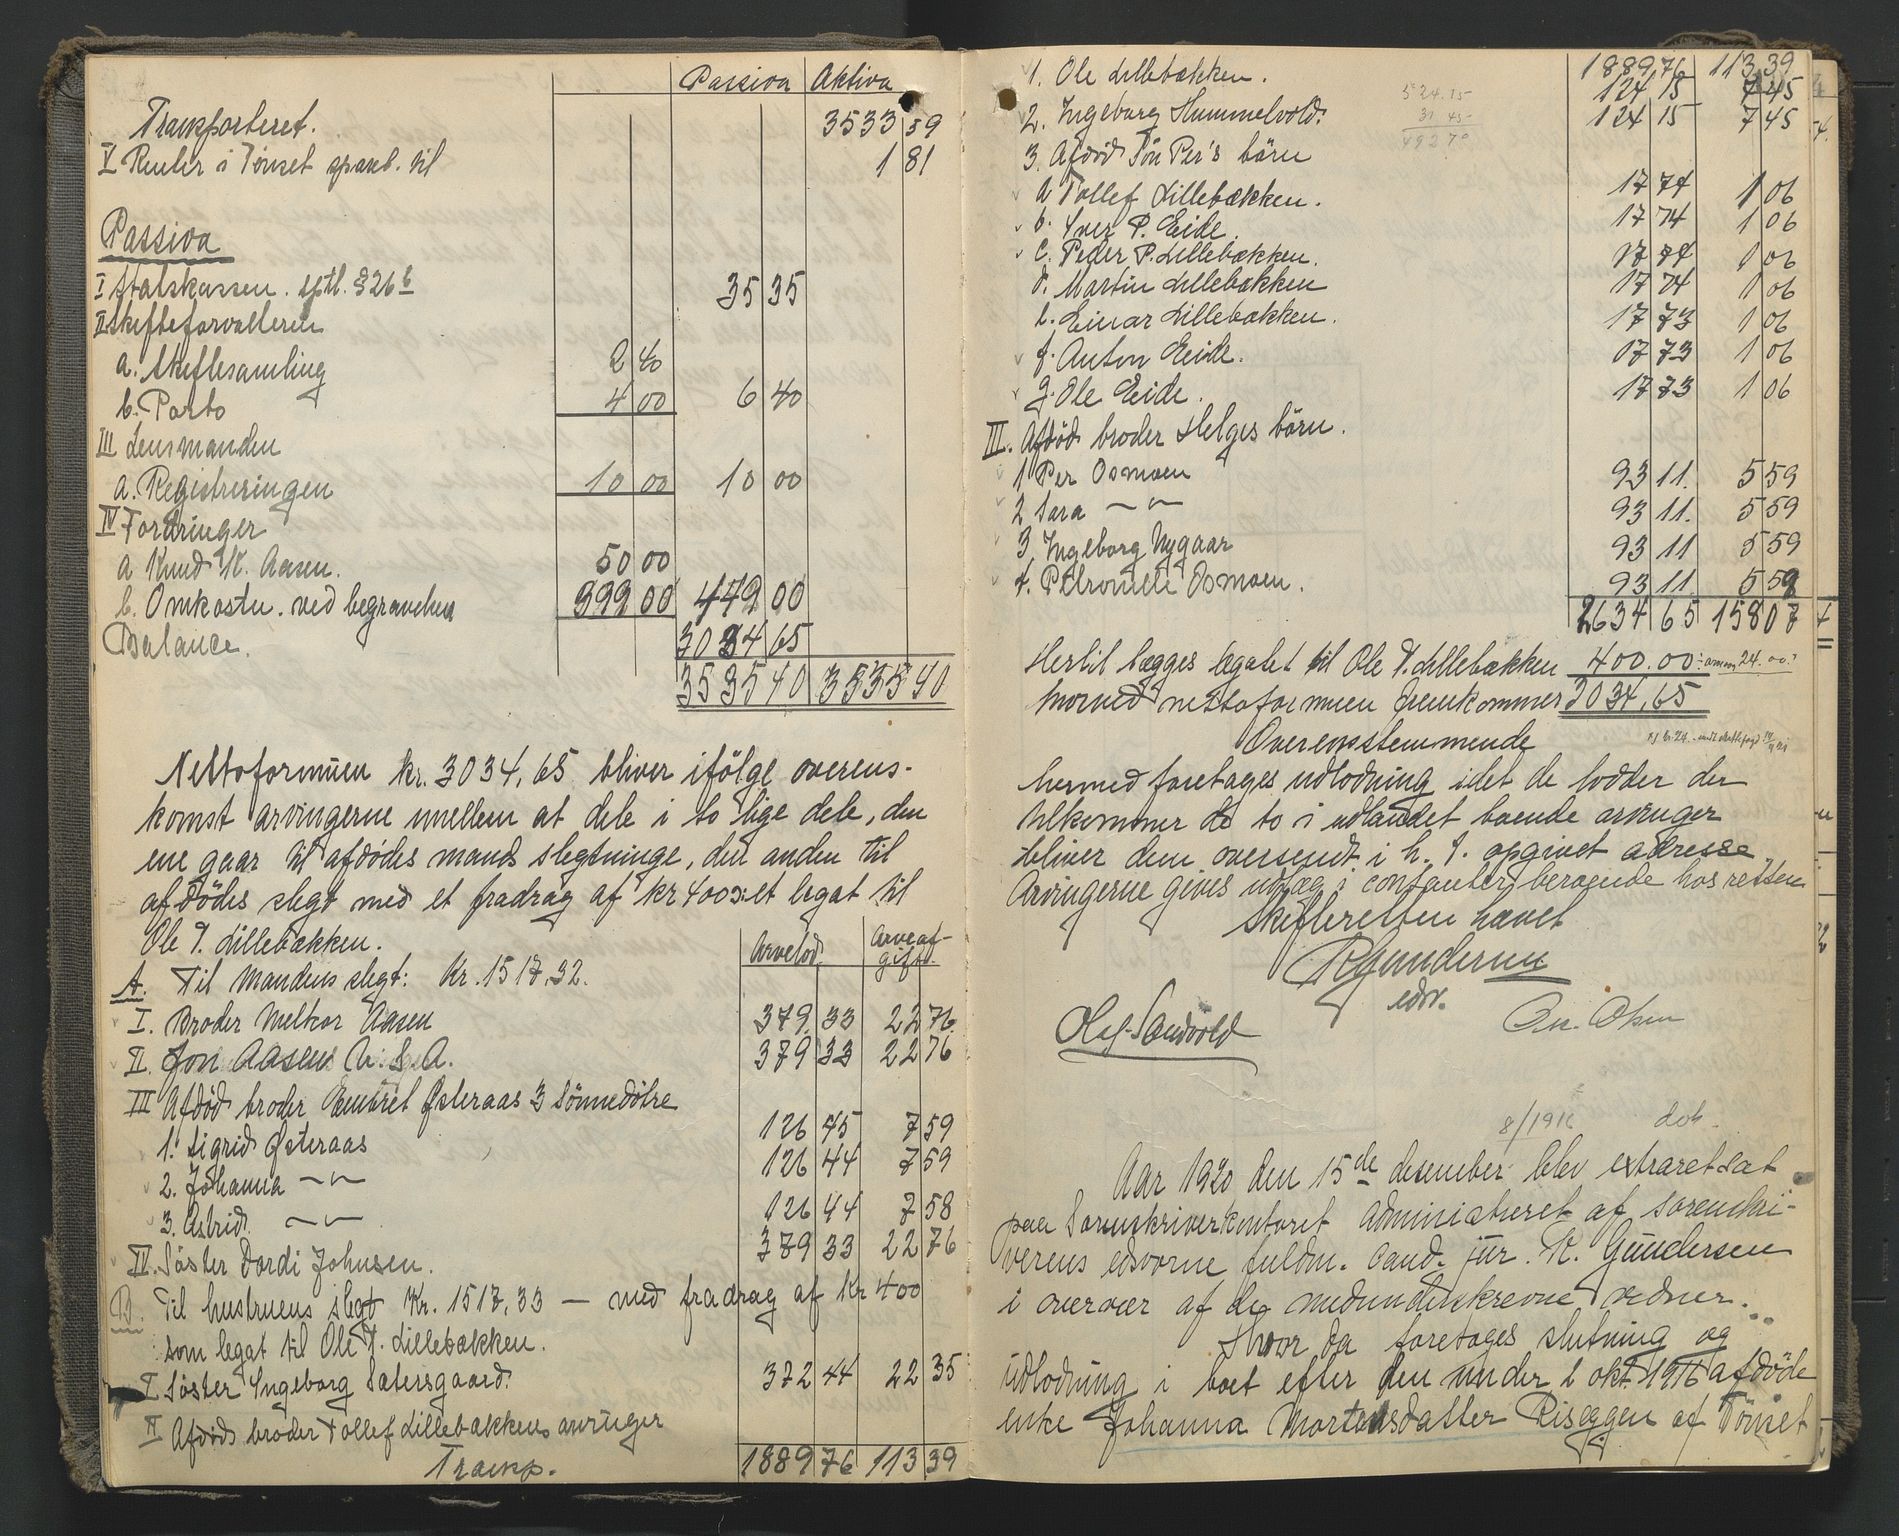 Passiva Aktiva
Transporteret. 3533 59
V Renter i Tönset spareb. til 1 81
Passiva
I Statskassen. sptl. § 26 6 35 35
II Skifteforvalteren
a. Skiftesamling 2 40
b. Porto 4 00 6 40
III Lensmanden
a. Registreringen 10 00 10 00
IV Fordringer
a Knud K. Aasen. 50 00
b. Omkostn. ved begravelsen 399 00 449 00
Balance. 3034 65
3535 40 3535 40
Nettoformuen kr. 3034,65 bliver ifölge overens-
komst arvingerne imellem at dele i to lige dele, den
ene gaar til afdödes mands slegtninge, den anden til
afdödes slegt med et fradrag af kr 400 et legat til
Ole T. Lillebækken.
Arvelod. Arveaf-
gift.
A. Til Mandens slegt: Kr. 1517,32.
I. Broder Melkor Aasen 379 33 22 76
II. Jon Aasen U.S.A. 379 33 22 76
III Afdöd broder Embret Österaas 3 Sönnedötre
1. Sigrid Österaas 126 45 7 59
2. Johanna —"— 126 44 7 59
3. Astrid. —"— 126 44 7 58
IV. Söster Dordi Johnsen. 379 33 22 76
B. Til hustruens slegt Kr. 1517,33 — med fradrag af Kr 400
som legat til Ole T. Lillebækken.
I Söster Ingeborg Sætersgaard. 372 44 22 35
II Afdöds broder Tollef Lillebækkens arvinger
Transp. 1889 76 113 39
1889 76 113 39
1. Ole Lillebækken. 124 15 7 45
524.15
31 45
492 70
2. Ingeborg Hummelvold. 124 15 7 45
3. Afdöd Sön Per's börn
a Tollef Lillebækken. 17 74 1 06
b. Iver P. Eide. 17 74 1 06
c. Peder P. Lillebækken. 17 74 1 06
d. Martin Lillebækken 17 74 1 06
e. Einar Lillebækken. 17 73 1 06
f. Anton Eide. 17 73 1 06
g. Ole Eide. 17 73 1 06
III. Afdöd broder Helges börn.
1 Per Osmoen 93 11. 5 59
2 Sara —"— 93 11. 5 59
3. Ingeborg Nygaar 93 11 5 59
4. Petronelle Osmoen. 93 11. 5 59
2634 65 158 07
Hertil lægges legatet til Ole T. Lillebækken 400.00 24.00
hvorved nettoformuen fremkommer 3034,65
Overensstemmende
hermed foretages udlodning idet de lodder der
tilkommer de to i udlandet boende arvinger
bliver dem oversendt i h. t. opgivet adresse
Arvingerne gives udlæg i contanter beroende hos retten
Skifteretten hævet
K Gundersen
edsv.
Olaf Sandvold
On. Olsen
8/1916 dok.
Aar 1920 den 15de desember blev extraret sat
paa Sorenskriverkontoret administreret af sorenskri-
verens edsvorne fuldm. Cand. jur. K. Gundersen
i overvær af de medunderskrevne vidner.
Hvor da foretages slutning og
udlodning i boet efter den under 2 okt. 1916 afdöde
enke Johanna Mortensdatter Riseggen af Tönset